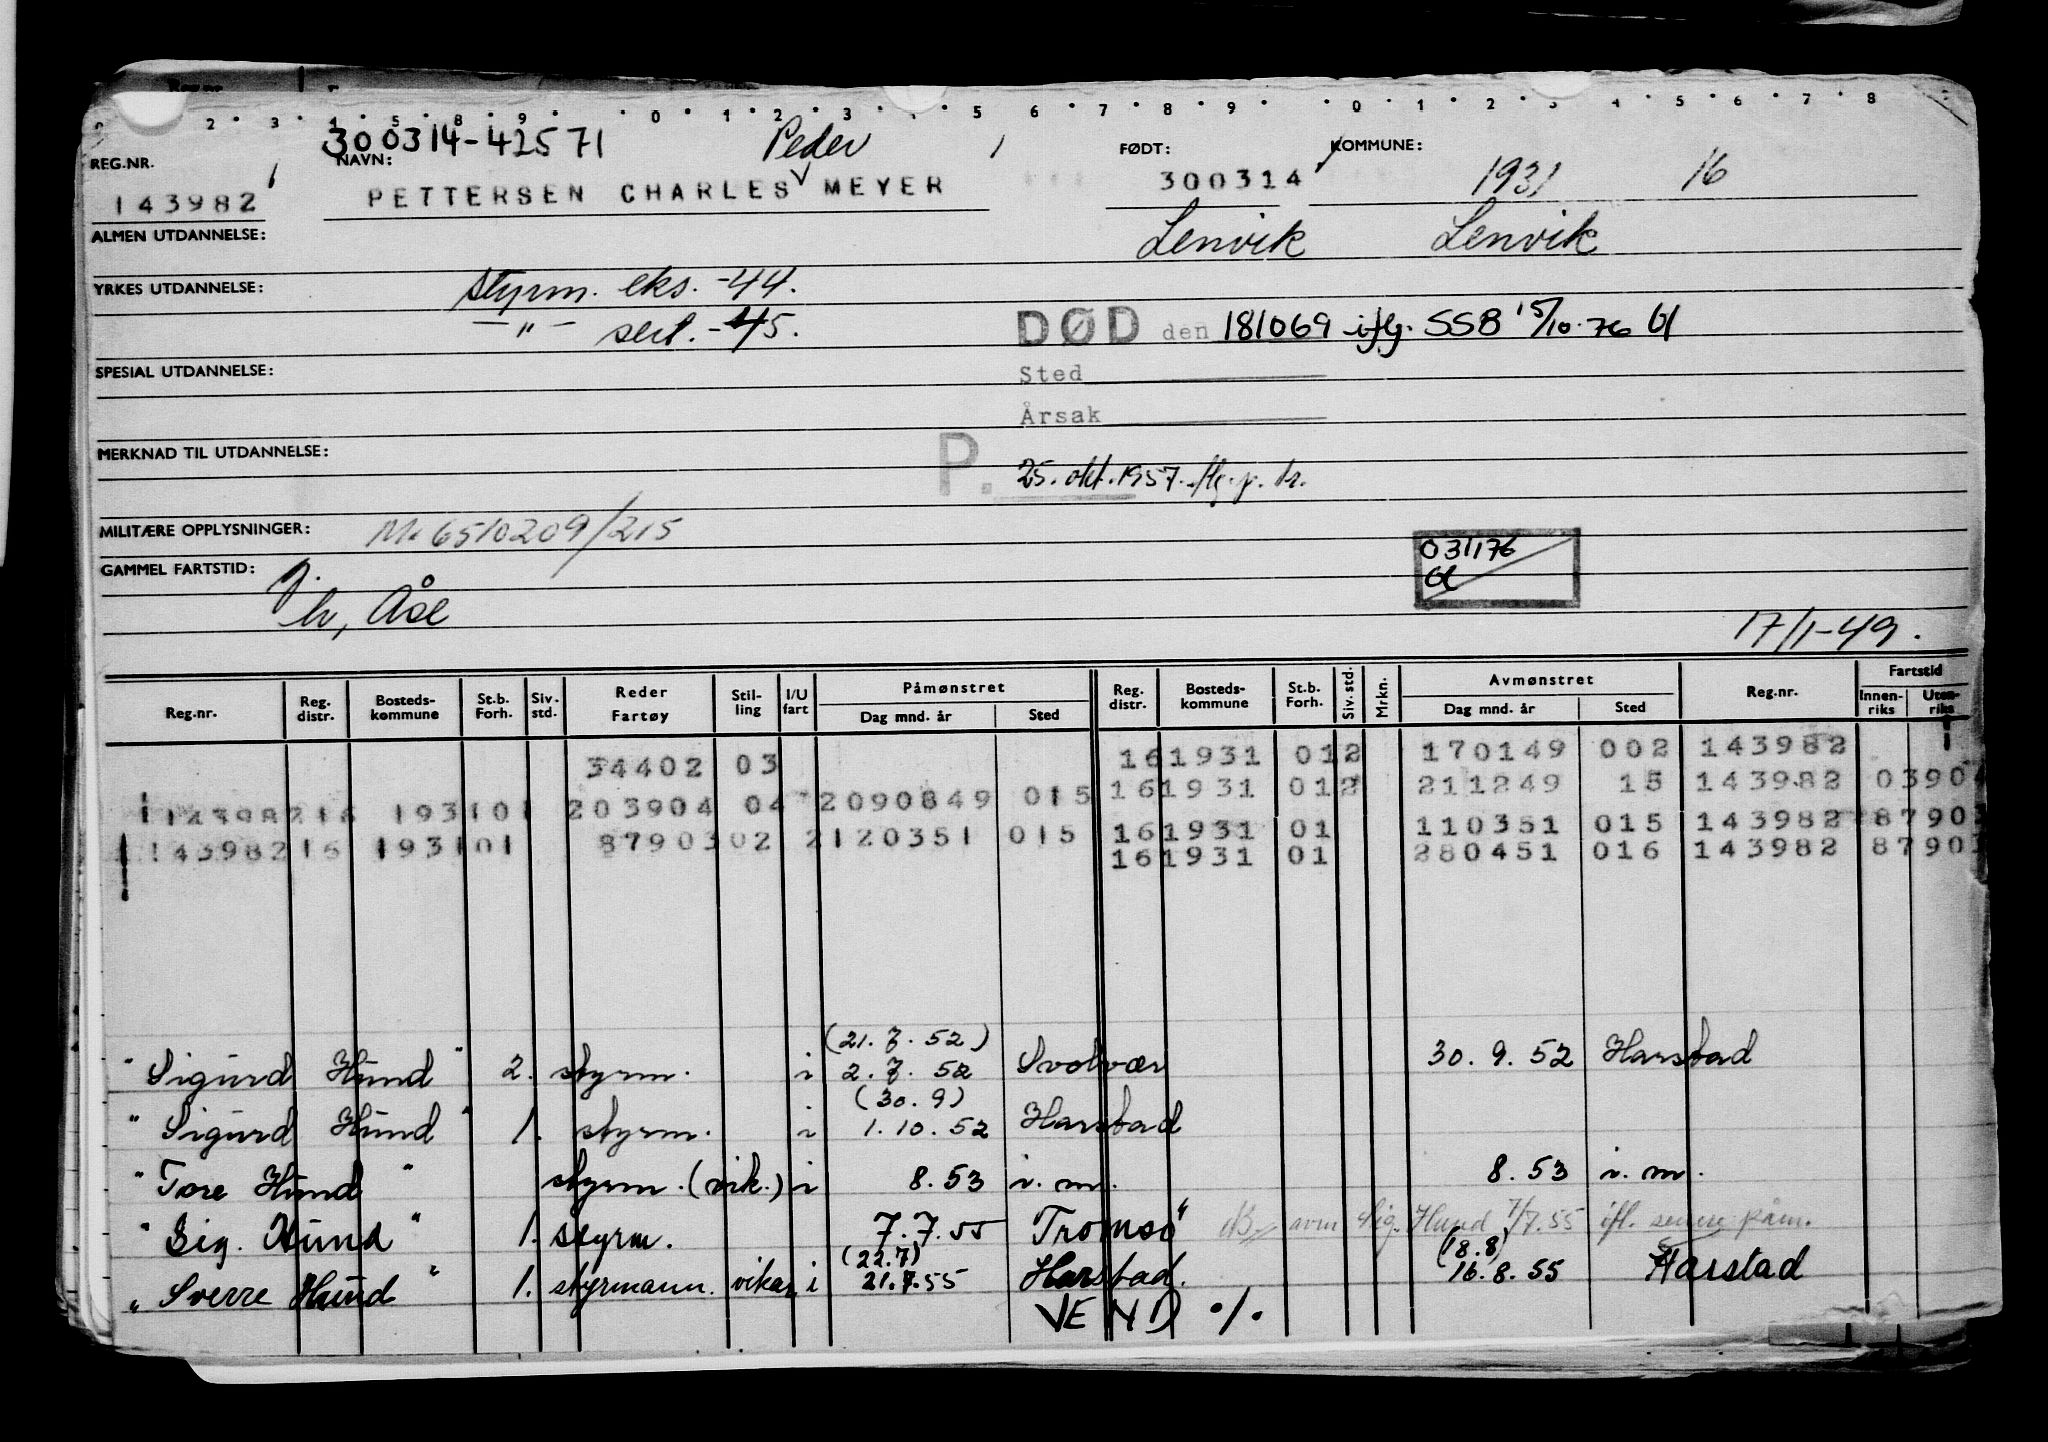 2 · 3 · 4 · 5 · 8 · 9 · · 0 · 1 2 · 3 · · 5 · 6 · 7 · 8 · 9 · · 0 · 1 · 2 · 3 · 4 · 5 · 6 · 7 · 8
300314-42571 Peder
REG.NR. NAVN: FØDT: KOMMUNE:
143982 PETTERSEN CHARLES MEYER 300314 1931 16
ALMEN UTDANNELSE: Lenvik Lenvik
YRKES UTDANNELSE: styrm. eks. -44.
-"- sert. -45. DØD den 181069 iflg. SSB 15/10-76
SPESIAL UTDANNELSE: Sted
Årsak
MERKNAD TIL UTDANNELSE: P. 25. okt. 1957.
MILITÆRE OPPLYSNINGER: M. 6510209/215
031176
GAMMEL FARTSTID:
h, Åse
17/1-49.
Reg.nr. Reg. distr. Bosteds-kommune St.b. Forh. Siv. std. Reder Fartøy Stil-ling I/U fart Påmønstret Dag mnd. år Sted Reg. distr. Bosteds-kommune St.b. Forh. Siv. std. Mrkn. Avmønstret Dag mnd. år Sted Reg.nr. Fartstid Innen-riks Uten-riks
34402 03 161931 012 170149 002 143982
143982 16 1931 01 203904 04 2090849 015 161931 012 211249 15 143982 03904
161931 01 110351 015 143982 8790
143982 16 1931 01 87903 02 2120351 015 161931 01 280451 016 143982 8790
(21.7.52)
"Sigurd Hund" 2. styrm. i 2.7.52 Svolvær 30.9.52 Harstad
(30.9)
"Sigurd Hund" 1. styrm. i 1.10.52 Harstad
"Tore Hund" styrm. (vik.) i 8.53 i.m. 8.53 i.m.
"Sig. Hund" 1. styrm. 7.7.55 Tromsø avm Sig. Hund 7/7.55 ifl. senere påm.
(22.7) (18.8)
"Sverre Hund" 1. styrmann. vikar i 21.7.55 Harstad. 16.8.55 Harstad
VEND ./.